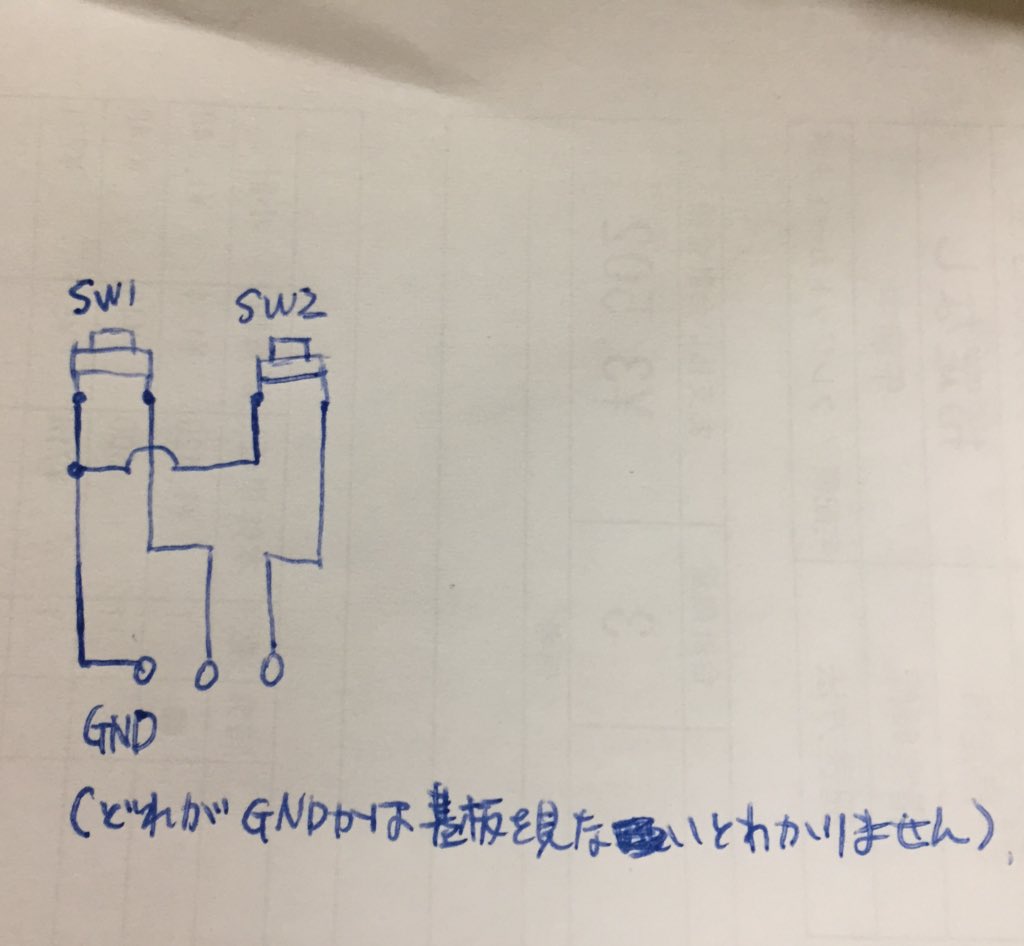 SW1 SW2
GND
(どれがGNDかは基板を見ないとわかりません)